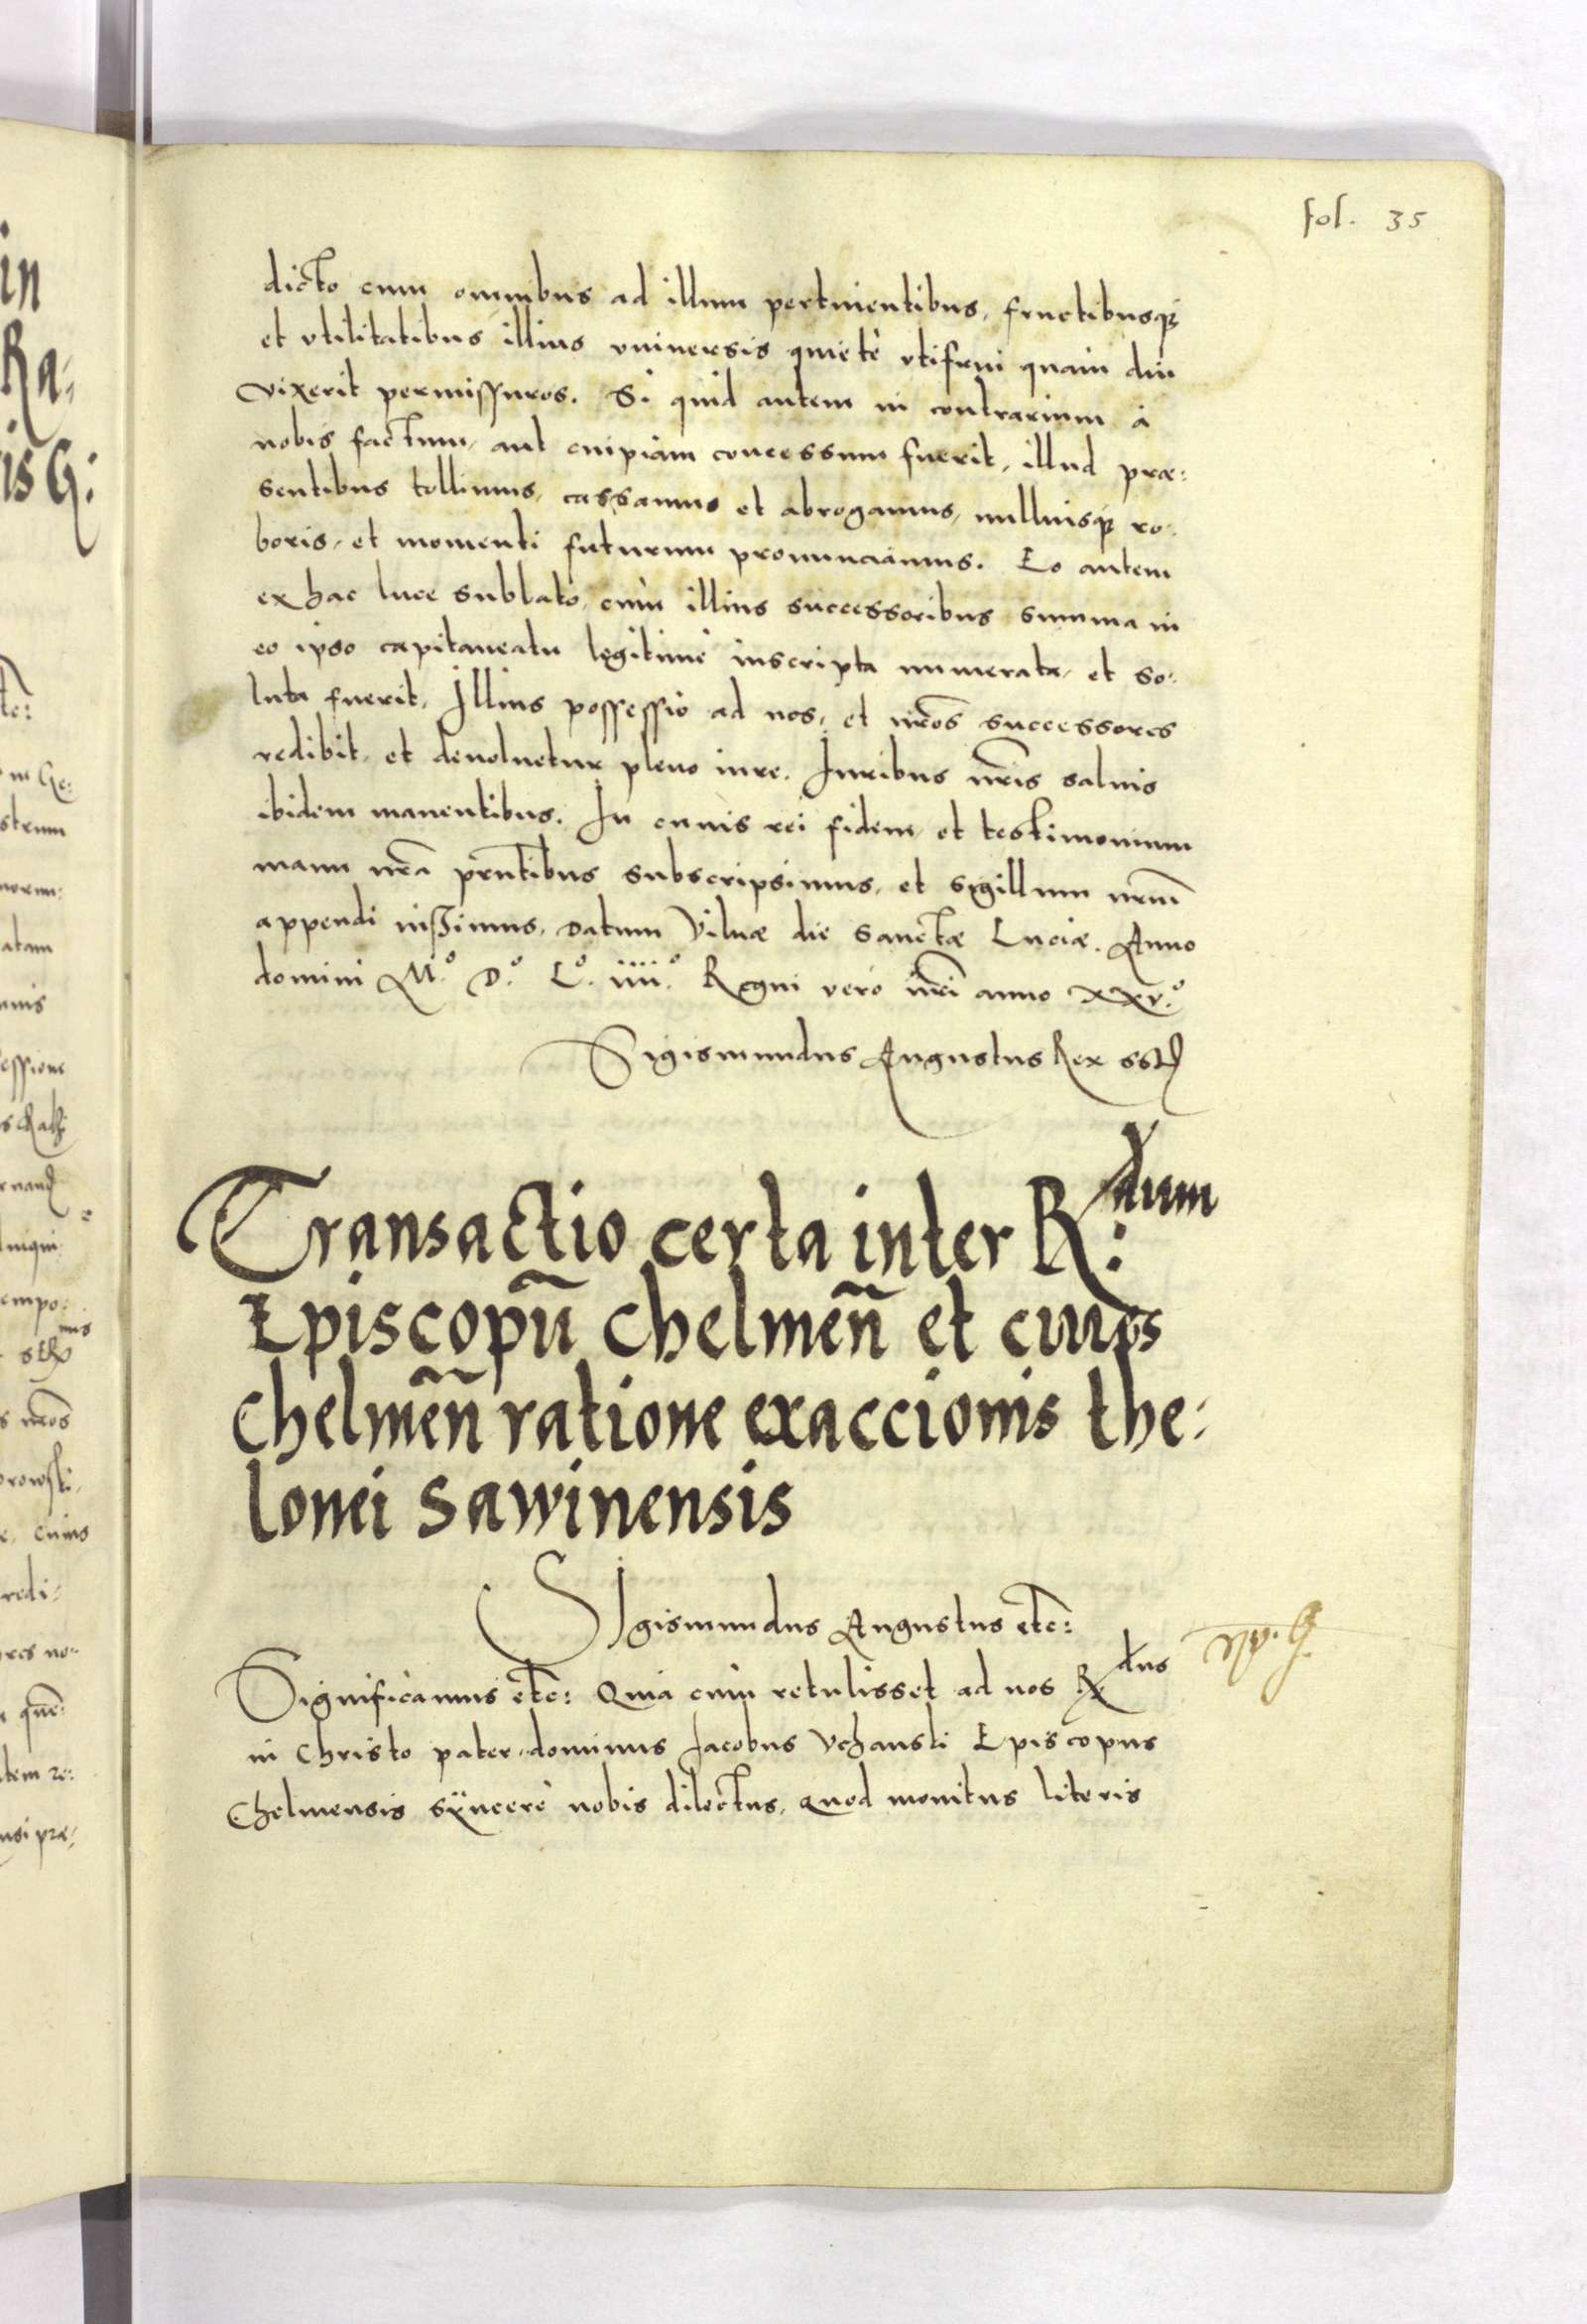 fol. 35
dicto cum omnibus ad illum pertinentibus, fructibusq;
et vtilitatibus illius vniuersis quietè vtifrui quam diu
vixerit permissuros. Si quid autem in contrarium à
nobis factum, aut cuipiam concessum fuerit, illud præ:
sentibus tollimus, cassamus et abrogamus, nulliusq; ro:
boris, et momenti futurum pronunciamus. Eo autem
ex hac luce sublato, cùm illius successoribus summa in
eo ipso capitaneatu legitimè inscripta numerata, et so:
luta fuerit, Illius possessio ad nos, et nr̃os successores
redibit, et deuoluetur pleno iure. Iuribus nr̃is saluis
ibidem manentibus. In cuius rei fidem et testimonium
manu nr̃a pr̃ntibus subscripsimus, et sigillum nr̃um
appendi iussimus, Datum Vilnæ die Sanctæ Luciæ. Anno
domini M.º D.º L.º iiii.º Regni vero nr̃i anno xxv.º
Sigismundus Augustus Rex sst
Transactio certa inter R:dum
Episcopũ Chelmeñ et ciues
Chelmeñ ratione exaccionis the:
lonei Sawinensis
SIgismundus Augustus etc:
Significamus etc: Quia cùm retulisset ad nos Rdus
in Christo pater, dominus Jacobus Vchanski Episcopus
Chelmensis sÿncerè nobis dilectus, quod monitus literis